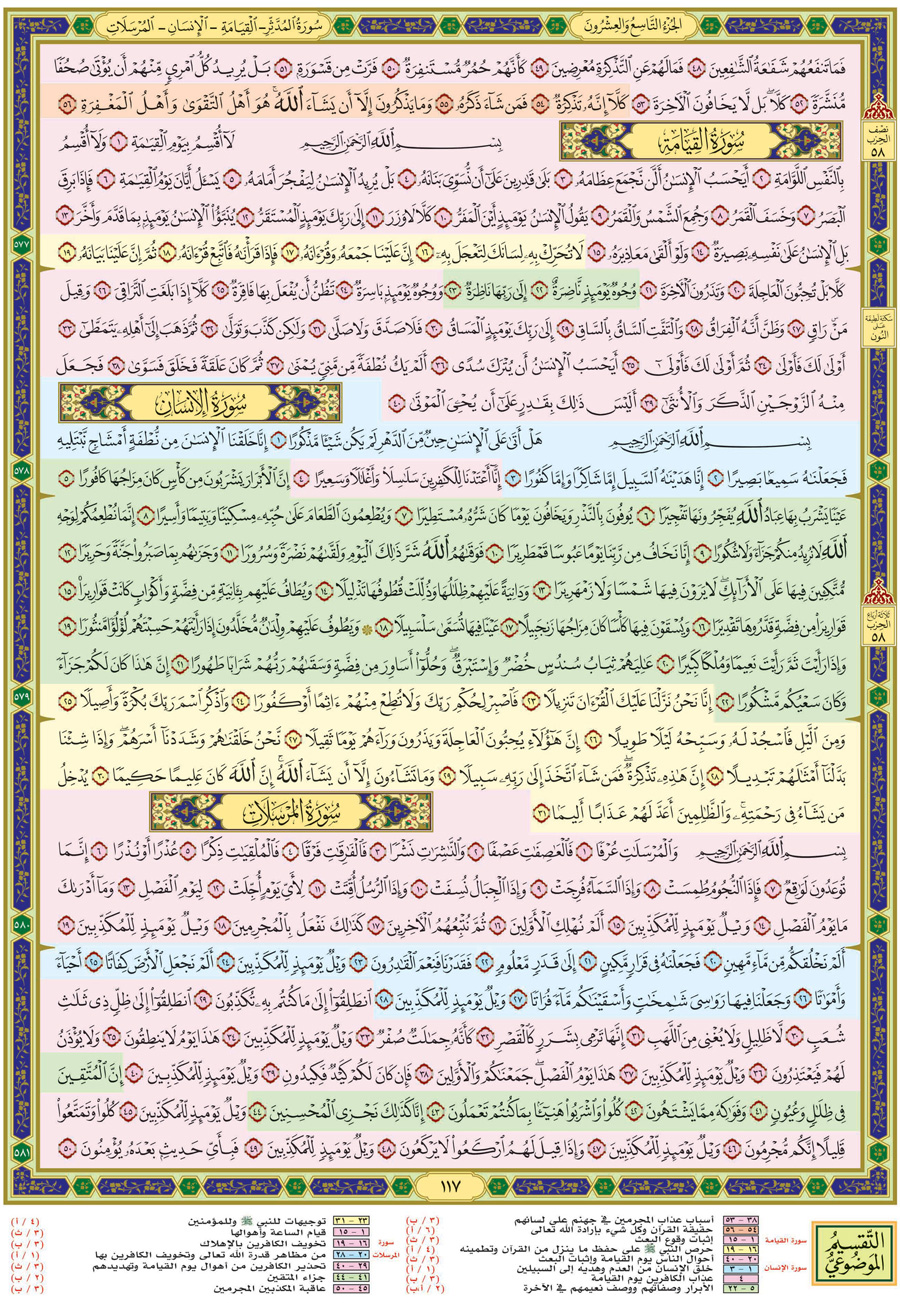 الجُزْءُ التَّاسِعُ وَالعِشْرُونَ
سُورَةُ المُدَّثِّر - القِيَامَةِ - الإِنسَانِ - المُرْسَلَاتِ
فَمَا تَنفَعُهُمْ شَفَٰعَةُ ٱلشَّٰفِعِينَ ٤٨ فَمَا لَهُمْ عَنِ ٱلتَّذْكِرَةِ مُعْرِضِينَ ٤٩ كَأَنَّهُمْ حُمُرٌ مُّسْتَنفِرَةٌ ٥٠ فَرَّتْ مِن قَسْوَرَةٍ ٥١ بَلْ يُرِيدُ كُلُّ ٱمْرِئٍ مِّنْهُمْ أَن يُؤْتَىٰ صُحُفًا
مُّنَشَّرَةً ٥٢ كَلَّا بَل لَّا يَخَافُونَ ٱلْأٓخِرَةَ ٥٣ كَلَّآ إِنَّهُۥ تَذْكِرَةٌ ٥٤ فَمَن شَآءَ ذَكَرَهُۥ ٥٥ وَمَا يَذْكُرُونَ إِلَّآ أَن يَشَآءَ ٱللَّهُ هُوَ أَهْلُ ٱلتَّقْوَىٰ وَأَهْلُ ٱلْمَغْفِرَةِ ٥٦
سُورَةُ القِيَامَةِ بِسْمِ ٱللَّهِ ٱلرَّحْمَٰنِ ٱلرَّحِيمِ لَآ أُقْسِمُ بِيَوْمِ ٱلْقِيَٰمَةِ ١ وَلَآ أُقْسِمُ
بِٱلنَّفْسِ ٱللَّوَّامَةِ ٢ أَيَحْسَبُ ٱلْإِنسَٰنُ أَلَّن نَّجْمَعَ عِظَامَهُۥ ٣ بَلَىٰ قَٰدِرِينَ عَلَىٰٓ أَن نُّسَوِّيَ بَنَانَهُۥ ٤ بَلْ يُرِيدُ ٱلْإِنسَٰنُ لِيَفْجُرَ أَمَامَهُۥ ٥ يَسْـَٔلُ أَيَّانَ يَوْمُ ٱلْقِيَٰمَةِ ٦ فَإِذَا بَرِقَ
ٱلْبَصَرُ ٧ وَخَسَفَ ٱلْقَمَرُ ٨ وَجُمِعَ ٱلشَّمْسُ وَٱلْقَمَرُ ٩ يَقُولُ ٱلْإِنسَٰنُ يَوْمَئِذٍ أَيْنَ ٱلْمَفَرُّ ١٠ كَلَّا لَا وَزَرَ ١١ إِلَىٰ رَبِّكَ يَوْمَئِذٍ ٱلْمُسْتَقَرُّ ١٢ يُنَبَّؤُاْ ٱلْإِنسَٰنُ يَوْمَئِذٍۭ بِمَا قَدَّمَ وَأَخَّرَ ١٣
بَلِ ٱلْإِنسَٰنُ عَلَىٰ نَفْسِهِۦ بَصِيرَةٌ ١٤ وَلَوْ أَلْقَىٰ مَعَاذِيرَهُۥ ١٥ لَا تُحَرِّكْ بِهِۦ لِسَانَكَ لِتَعْجَلَ بِهِۦٓ ١٦ إِنَّ عَلَيْنَا جَمْعَهُۥ وَقُرْءَانَهُۥ ١٧ فَإِذَا قَرَأْنَٰهُ فَٱتَّبِعْ قُرْءَانَهُۥ ١٨ ثُمَّ إِنَّ عَلَيْنَا بَيَانَهُۥ ١٩
كَلَّا بَلْ تُحِبُّونَ ٱلْعَاجِلَةَ ٢٠ وَتَذَرُونَ ٱلْأٓخِرَةَ ٢١ وُجُوهٌ يَوْمَئِذٍ نَّاضِرَةٌ ٢٢ إِلَىٰ رَبِّهَا نَاظِرَةٌ ٢٣ وَوُجُوهٌ يَوْمَئِذٍۭ بَاسِرَةٌ ٢٤ تَظُنُّ أَن يُفْعَلَ بِهَا فَاقِرَةٌ ٢٥ كَلَّآ إِذَا بَلَغَتِ ٱلتَّرَاقِيَ ٢٦ وَقِيلَ
مَنْۜ رَاقٍ ٢٧ وَظَنَّ أَنَّهُ ٱلْفِرَاقُ ٢٨ وَٱلْتَفَّتِ ٱلسَّاقُ بِٱلسَّاقِ ٢٩ إِلَىٰ رَبِّكَ يَوْمَئِذٍ ٱلْمَسَاقُ ٣٠ فَلَا صَدَّقَ وَلَا صَلَّىٰ ٣١ وَلَٰكِن كَذَّبَ وَتَوَلَّىٰ ٣٢ ثُمَّ ذَهَبَ إِلَىٰٓ أَهْلِهِۦ يَتَمَطَّىٰٓ ٣٣
أَوْلَىٰ لَكَ فَأَوْلَىٰ ٣٤ ثُمَّ أَوْلَىٰ لَكَ فَأَوْلَىٰٓ ٣٥ أَيَحْسَبُ ٱلْإِنسَٰنُ أَن يُتْرَكَ سُدًى ٣٦ أَلَمْ يَكُ نُطْفَةً مِّن مَّنِيٍّ يُمْنَىٰ ٣٧ ثُمَّ كَانَ عَلَقَةً فَخَلَقَ فَسَوَّىٰ ٣٨ فَجَعَلَ
مِنْهُ ٱلزَّوْجَيْنِ ٱلذَّكَرَ وَٱلْأُنثَىٰٓ ٣٩ أَلَيْسَ ذَٰلِكَ بِقَٰدِرٍ عَلَىٰٓ أَن يُحْـِۧيَ ٱلْمَوْتَىٰ ٤٠ سُورَةُ الإِنسَانِ
بِسْمِ ٱللَّهِ ٱلرَّحْمَٰنِ ٱلرَّحِيمِ هَلْ أَتَىٰ عَلَى ٱلْإِنسَٰنِ حِينٌ مِّنَ ٱلدَّهْرِ لَمْ يَكُن شَيْـًٔا مَّذْكُورًا ١ إِنَّا خَلَقْنَا ٱلْإِنسَٰنَ مِن نُّطْفَةٍ أَمْشَاجٍ نَّبْتَلِيهِ
فَجَعَلْنَٰهُ سَمِيعًۢا بَصِيرًا ٢ إِنَّا هَدَيْنَٰهُ ٱلسَّبِيلَ إِمَّا شَاكِرًا وَإِمَّا كَفُورًا ٣ إِنَّآ أَعْتَدْنَا لِلْكَٰفِرِينَ سَلَٰسِلَاْ وَأَغْلَٰلًا وَسَعِيرًا ٤ إِنَّ ٱلْأَبْرَارَ يَشْرَبُونَ مِن كَأْسٍ كَانَ مِزَاجُهَا كَافُورًا ٥
عَيْنًا يَشْرَبُ بِهَا عِبَادُ ٱللَّهِ يُفَجِّرُونَهَا تَفْجِيرًا ٦ يُوفُونَ بِٱلنَّذْرِ وَيَخَافُونَ يَوْمًا كَانَ شَرُّهُۥ مُسْتَطِيرًا ٧ وَيُطْعِمُونَ ٱلطَّعَامَ عَلَىٰ حُبِّهِۦ مِسْكِينًا وَيَتِيمًا وَأَسِيرًا ٨ إِنَّمَا نُطْعِمُكُمْ لِوَجْهِ
ٱللَّهِ لَا نُرِيدُ مِنكُمْ جَزَآءً وَلَا شُكُورًا ٩ إِنَّا نَخَافُ مِن رَّبِّنَا يَوْمًا عَبُوسًا قَمْطَرِيرًا ١٠ فَوَقَىٰهُمُ ٱللَّهُ شَرَّ ذَٰلِكَ ٱلْيَوْمِ وَلَقَّىٰهُمْ نَضْرَةً وَسُرُورًا ١١ وَجَزَىٰهُم بِمَا صَبَرُواْ جَنَّةً وَحَرِيرًا ١٢
مُّتَّكِـِٔينَ فِيهَا عَلَى ٱلْأَرَآئِكِ لَا يَرَوْنَ فِيهَا شَمْسًا وَلَا زَمْهَرِيرًا ١٣ وَدَانِيَةً عَلَيْهِمْ ظِلَٰلُهَا وَذُلِّلَتْ قُطُوفُهَا تَذْلِيلًا ١٤ وَيُطَافُ عَلَيْهِم بِـَٔانِيَةٍ مِّن فِضَّةٍ وَأَكْوَابٍ كَانَتْ قَوَارِيرَا۠ ١٥
قَوَارِيرَاْ مِن فِضَّةٍ قَدَّرُوهَا تَقْدِيرًا ١٦ وَيُسْقَوْنَ فِيهَا كَأْسًا كَانَ مِزَاجُهَا زَنجَبِيلًا ١٧ عَيْنًا فِيهَا تُسَمَّىٰ سَلْسَبِيلًا ١٨ ۞ وَيَطُوفُ عَلَيْهِمْ وِلْدَٰنٌ مُّخَلَّدُونَ إِذَا رَأَيْتَهُمْ حَسِبْتَهُمْ لُؤْلُؤًا مَّنثُورًا ١٩
وَإِذَا رَأَيْتَ ثَمَّ رَأَيْتَ نَعِيمًا وَمُلْكًا كَبِيرًا ٢٠ عَٰلِيَهُمْ ثِيَابُ سُندُسٍ خُضْرٌ وَإِسْتَبْرَقٌ وَحُلُّوٓاْ أَسَاوِرَ مِن فِضَّةٍ وَسَقَىٰهُمْ رَبُّهُمْ شَرَابًا طَهُورًا ٢١ إِنَّ هَٰذَا كَانَ لَكُمْ جَزَآءً
وَكَانَ سَعْيُكُم مَّشْكُورًا ٢٢ إِنَّا نَحْنُ نَزَّلْنَا عَلَيْكَ ٱلْقُرْءَانَ تَنزِيلًا ٢٣ فَٱصْبِرْ لِحُكْمِ رَبِّكَ وَلَا تُطِعْ مِنْهُمْ ءَاثِمًا أَوْ كَفُورًا ٢٤ وَٱذْكُرِ ٱسْمَ رَبِّكَ بُكْرَةً وَأَصِيلًا ٢٥
وَمِنَ ٱلَّيْلِ فَٱسْجُدْ لَهُۥ وَسَبِّحْهُ لَيْلًا طَوِيلًا ٢٦ إِنَّ هَٰٓؤُلَآءِ يُحِبُّونَ ٱلْعَاجِلَةَ وَيَذَرُونَ وَرَآءَهُمْ يَوْمًا ثَقِيلًا ٢٧ نَّحْنُ خَلَقْنَٰهُمْ وَشَدَدْنَآ أَسْرَهُمْ وَإِذَا شِئْنَا
بَدَّلْنَآ أَمْثَٰلَهُمْ تَبْدِيلًا ٢٨ إِنَّ هَٰذِهِۦ تَذْكِرَةٌ فَمَن شَآءَ ٱتَّخَذَ إِلَىٰ رَبِّهِۦ سَبِيلًا ٢٩ وَمَا تَشَآءُونَ إِلَّآ أَن يَشَآءَ ٱللَّهُ إِنَّ ٱللَّهَ كَانَ عَلِيمًا حَكِيمًا ٣٠ يُدْخِلُ
مَن يَشَآءُ فِي رَحْمَتِهِۦ وَٱلظَّٰلِمِينَ أَعَدَّ لَهُمْ عَذَابًا أَلِيمًۢا ٣١ سُورَةُ المُرْسَلَاتِ
بِسْمِ ٱللَّهِ ٱلرَّحْمَٰنِ ٱلرَّحِيمِ وَٱلْمُرْسَلَٰتِ عُرْفًا ١ فَٱلْعَٰصِفَٰتِ عَصْفًا ٢ وَٱلنَّٰشِرَٰتِ نَشْرًا ٣ فَٱلْفَٰرِقَٰتِ فَرْقًا ٤ فَٱلْمُلْقِيَٰتِ ذِكْرًا ٥ عُذْرًا أَوْ نُذْرًا ٦ إِنَّمَا
تُوعَدُونَ لَوَٰقِعٌ ٧ فَإِذَا ٱلنُّجُومُ طُمِسَتْ ٨ وَإِذَا ٱلسَّمَآءُ فُرِجَتْ ٩ وَإِذَا ٱلْجِبَالُ نُسِفَتْ ١٠ وَإِذَا ٱلرُّسُلُ أُقِّتَتْ ١١ لِأَيِّ يَوْمٍ أُجِّلَتْ ١٢ لِيَوْمِ ٱلْفَصْلِ ١٣ وَمَآ أَدْرَىٰكَ
مَا يَوْمُ ٱلْفَصْلِ ١٤ وَيْلٌ يَوْمَئِذٍ لِّلْمُكَذِّبِينَ ١٥ أَلَمْ نُهْلِكِ ٱلْأَوَّلِينَ ١٦ ثُمَّ نُتْبِعُهُمُ ٱلْأٓخِرِينَ ١٧ كَذَٰلِكَ نَفْعَلُ بِٱلْمُجْرِمِينَ ١٨ وَيْلٌ يَوْمَئِذٍ لِّلْمُكَذِّبِينَ ١٩
أَلَمْ نَخْلُقكُّم مِّن مَّآءٍ مَّهِينٍ ٢٠ فَجَعَلْنَٰهُ فِي قَرَارٍ مَّكِينٍ ٢١ إِلَىٰ قَدَرٍ مَّعْلُومٍ ٢٢ فَقَدَرْنَا فَنِعْمَ ٱلْقَٰدِرُونَ ٢٣ وَيْلٌ يَوْمَئِذٍ لِّلْمُكَذِّبِينَ ٢٤ أَلَمْ نَجْعَلِ ٱلْأَرْضَ كِفَاتًا ٢٥ أَحْيَآءً
وَأَمْوَٰتًا ٢٦ وَجَعَلْنَا فِيهَا رَوَٰسِيَ شَٰمِخَٰتٍ وَأَسْقَيْنَٰكُم مَّآءً فُرَاتًا ٢٧ وَيْلٌ يَوْمَئِذٍ لِّلْمُكَذِّبِينَ ٢٨ ٱنطَلِقُوٓاْ إِلَىٰ مَا كُنتُم بِهِۦ تُكَذِّبُونَ ٢٩ ٱنطَلِقُوٓاْ إِلَىٰ ظِلٍّ ذِي ثَلَٰثِ
شُعَبٍ ٣٠ لَّا ظَلِيلٍ وَلَا يُغْنِي مِنَ ٱللَّهَبِ ٣١ إِنَّهَا تَرْمِي بِشَرَرٍ كَٱلْقَصْرِ ٣٢ كَأَنَّهُۥ جِمَٰلَتٌ صُفْرٌ ٣٣ وَيْلٌ يَوْمَئِذٍ لِّلْمُكَذِّبِينَ ٣٤ هَٰذَا يَوْمُ لَا يَنطِقُونَ ٣٥ وَلَا يُؤْذَنُ
لَهُمْ فَيَعْتَذِرُونَ ٣٦ وَيْلٌ يَوْمَئِذٍ لِّلْمُكَذِّبِينَ ٣٧ هَٰذَا يَوْمُ ٱلْفَصْلِ جَمَعْنَٰكُمْ وَٱلْأَوَّلِينَ ٣٨ فَإِن كَانَ لَكُمْ كَيْدٌ فَكِيدُونِ ٣٩ وَيْلٌ يَوْمَئِذٍ لِّلْمُكَذِّبِينَ ٤٠ إِنَّ ٱلْمُتَّقِينَ
فِي ظِلَٰلٍ وَعُيُونٍ ٤١ وَفَوَٰكِهَ مِمَّا يَشْتَهُونَ ٤٢ كُلُواْ وَٱشْرَبُواْ هَنِيٓـًٔۢا بِمَا كُنتُمْ تَعْمَلُونَ ٤٣ إِنَّا كَذَٰلِكَ نَجْزِي ٱلْمُحْسِنِينَ ٤٤ وَيْلٌ يَوْمَئِذٍ لِّلْمُكَذِّبِينَ ٤٥ كُلُواْ وَتَمَتَّعُواْ
قَلِيلًا إِنَّكُم مُّجْرِمُونَ ٤٦ وَيْلٌ يَوْمَئِذٍ لِّلْمُكَذِّبِينَ ٤٧ وَإِذَا قِيلَ لَهُمُ ٱرْكَعُواْ لَا يَرْكَعُونَ ٤٨ وَيْلٌ يَوْمَئِذٍ لِّلْمُكَذِّبِينَ ٤٩ فَبِأَيِّ حَدِيثٍۭ بَعْدَهُۥ يُؤْمِنُونَ ٥٠
نصف الحزب ٥٨
سكتة لطيفة على النون
ثلاثة أرباع الحزب ٥٨
٥٧٧
٥٧٨
٥٧٩
٥٨٠
٥٨١
١١٧
التَّقسِيمُ المَوضُوعِيُّ
٣٨ - ٥٣ أسباب عذاب المجرمين في جهنم على لسانهم (٣ / ب)
٥٤ - ٥٦ حقيقة القرآن وكل شيء بإرادة الله تعالى (٦ / أ)
سورة القيامة
١ - ١٥ إثبات وقوع البعث (٣ / ث)
١٦ - ١٩ حرص النبي ﷺ على حفظ ما ينزل من القرآن وتطمينه (٤ / أ)
٢٠ - ٤٠ أحوال الناس يوم القيامة وإثبات البعث (٣ / ث)
سورة الإنسان
١ - ٣ خلق الإنسان من العدم وهديه إلى السبيلين (١ / أ)
٤ عذاب الكافرين يوم القيامة (٣ / ب)
٥ - ٢٢ الأبرار وصفاتهم ووصف نعيمهم في الآخرة (٢ / أ،ب)
٢٣ - ٣١ توجيهات للنبي ﷺ وللمؤمنين (٤ / أ)
سورة المرسلات
١ - ١٥ قيام الساعة وأهوالها (٣ / ث)
١٦ - ١٩ تخويف الكافرين بالإهلاك (٣ / ب)
٢٠ - ٢٨ من مظاهر قدرة الله تعالى وتخويف الكافرين بها (١ / أ)
٢٩ - ٤٠ تحذير الكافرين من أهوال يوم القيامة وتهديدهم (٣ / ث)
٤١ - ٤٤ جزاء المتقين (٢ / ب)
٤٥ - ٥٠ عاقبة المكذبين المجرمين (٣ / ب)